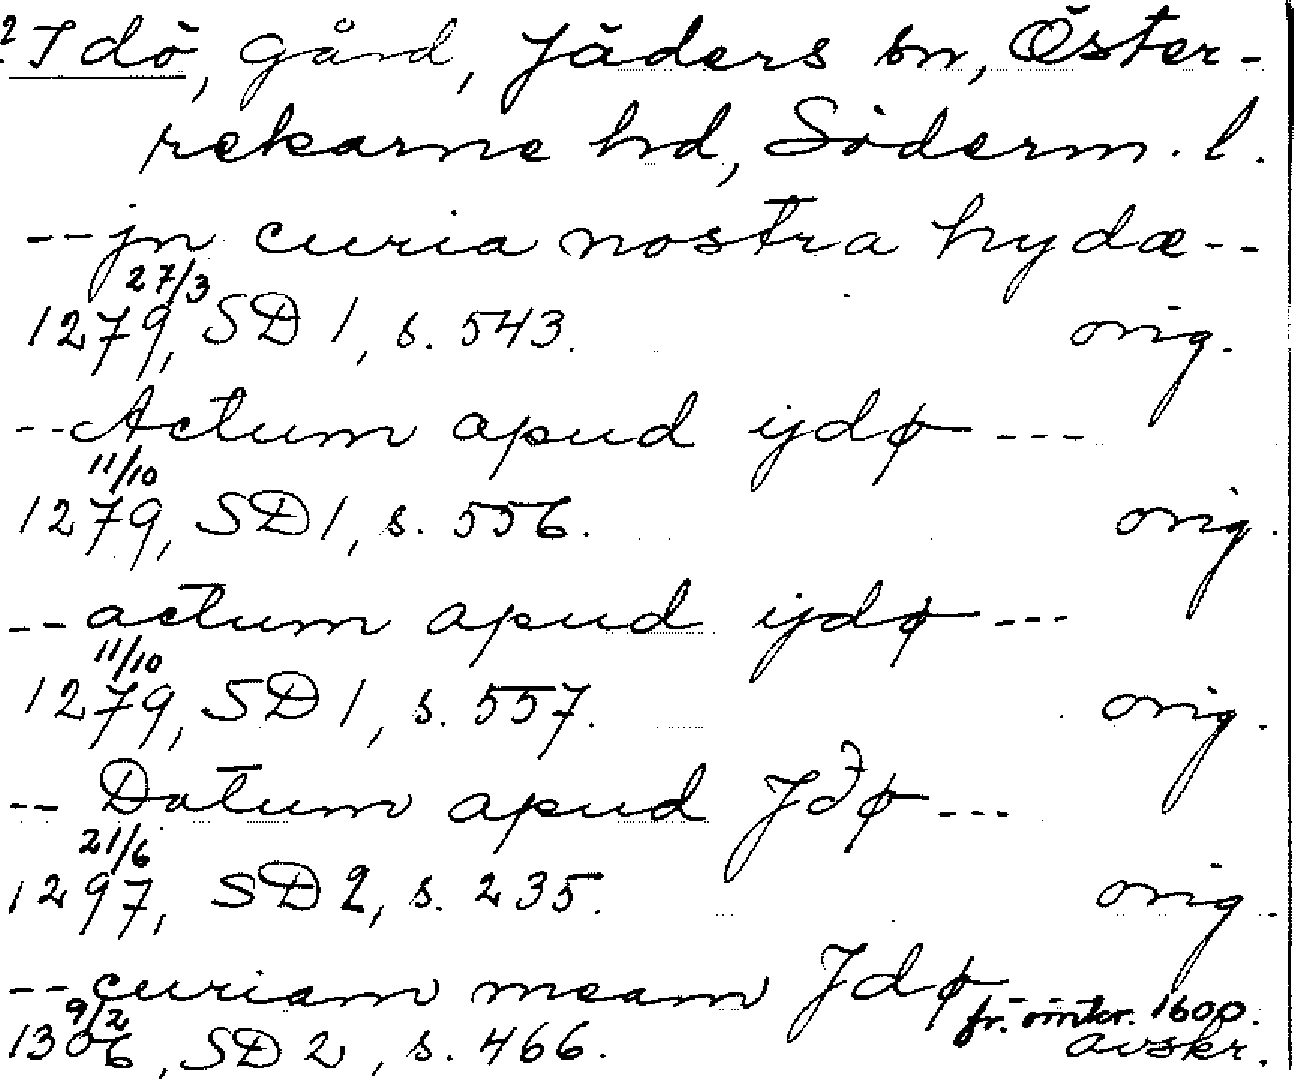 ? Idö, gård, Jäders sn, Öster-
rekarne hd, Söderm. l.
-- jn curia nostra hydæ --
27/3
1279, SD 1, s. 543. orig.
-- Actum apud ijdø ---
11/10
1279, SD 1, s. 556. orig.
-- actum apud ijdø ---
11/10
1279, SD 1, s. 557. orig.
-- Datum apud Jdø ---
21/6
1297, SD 2, s. 235. orig.
-- curiam meam Jdø --
9/2 fr. omkr. 1600.
1306, SD 2, s. 466. avskr.